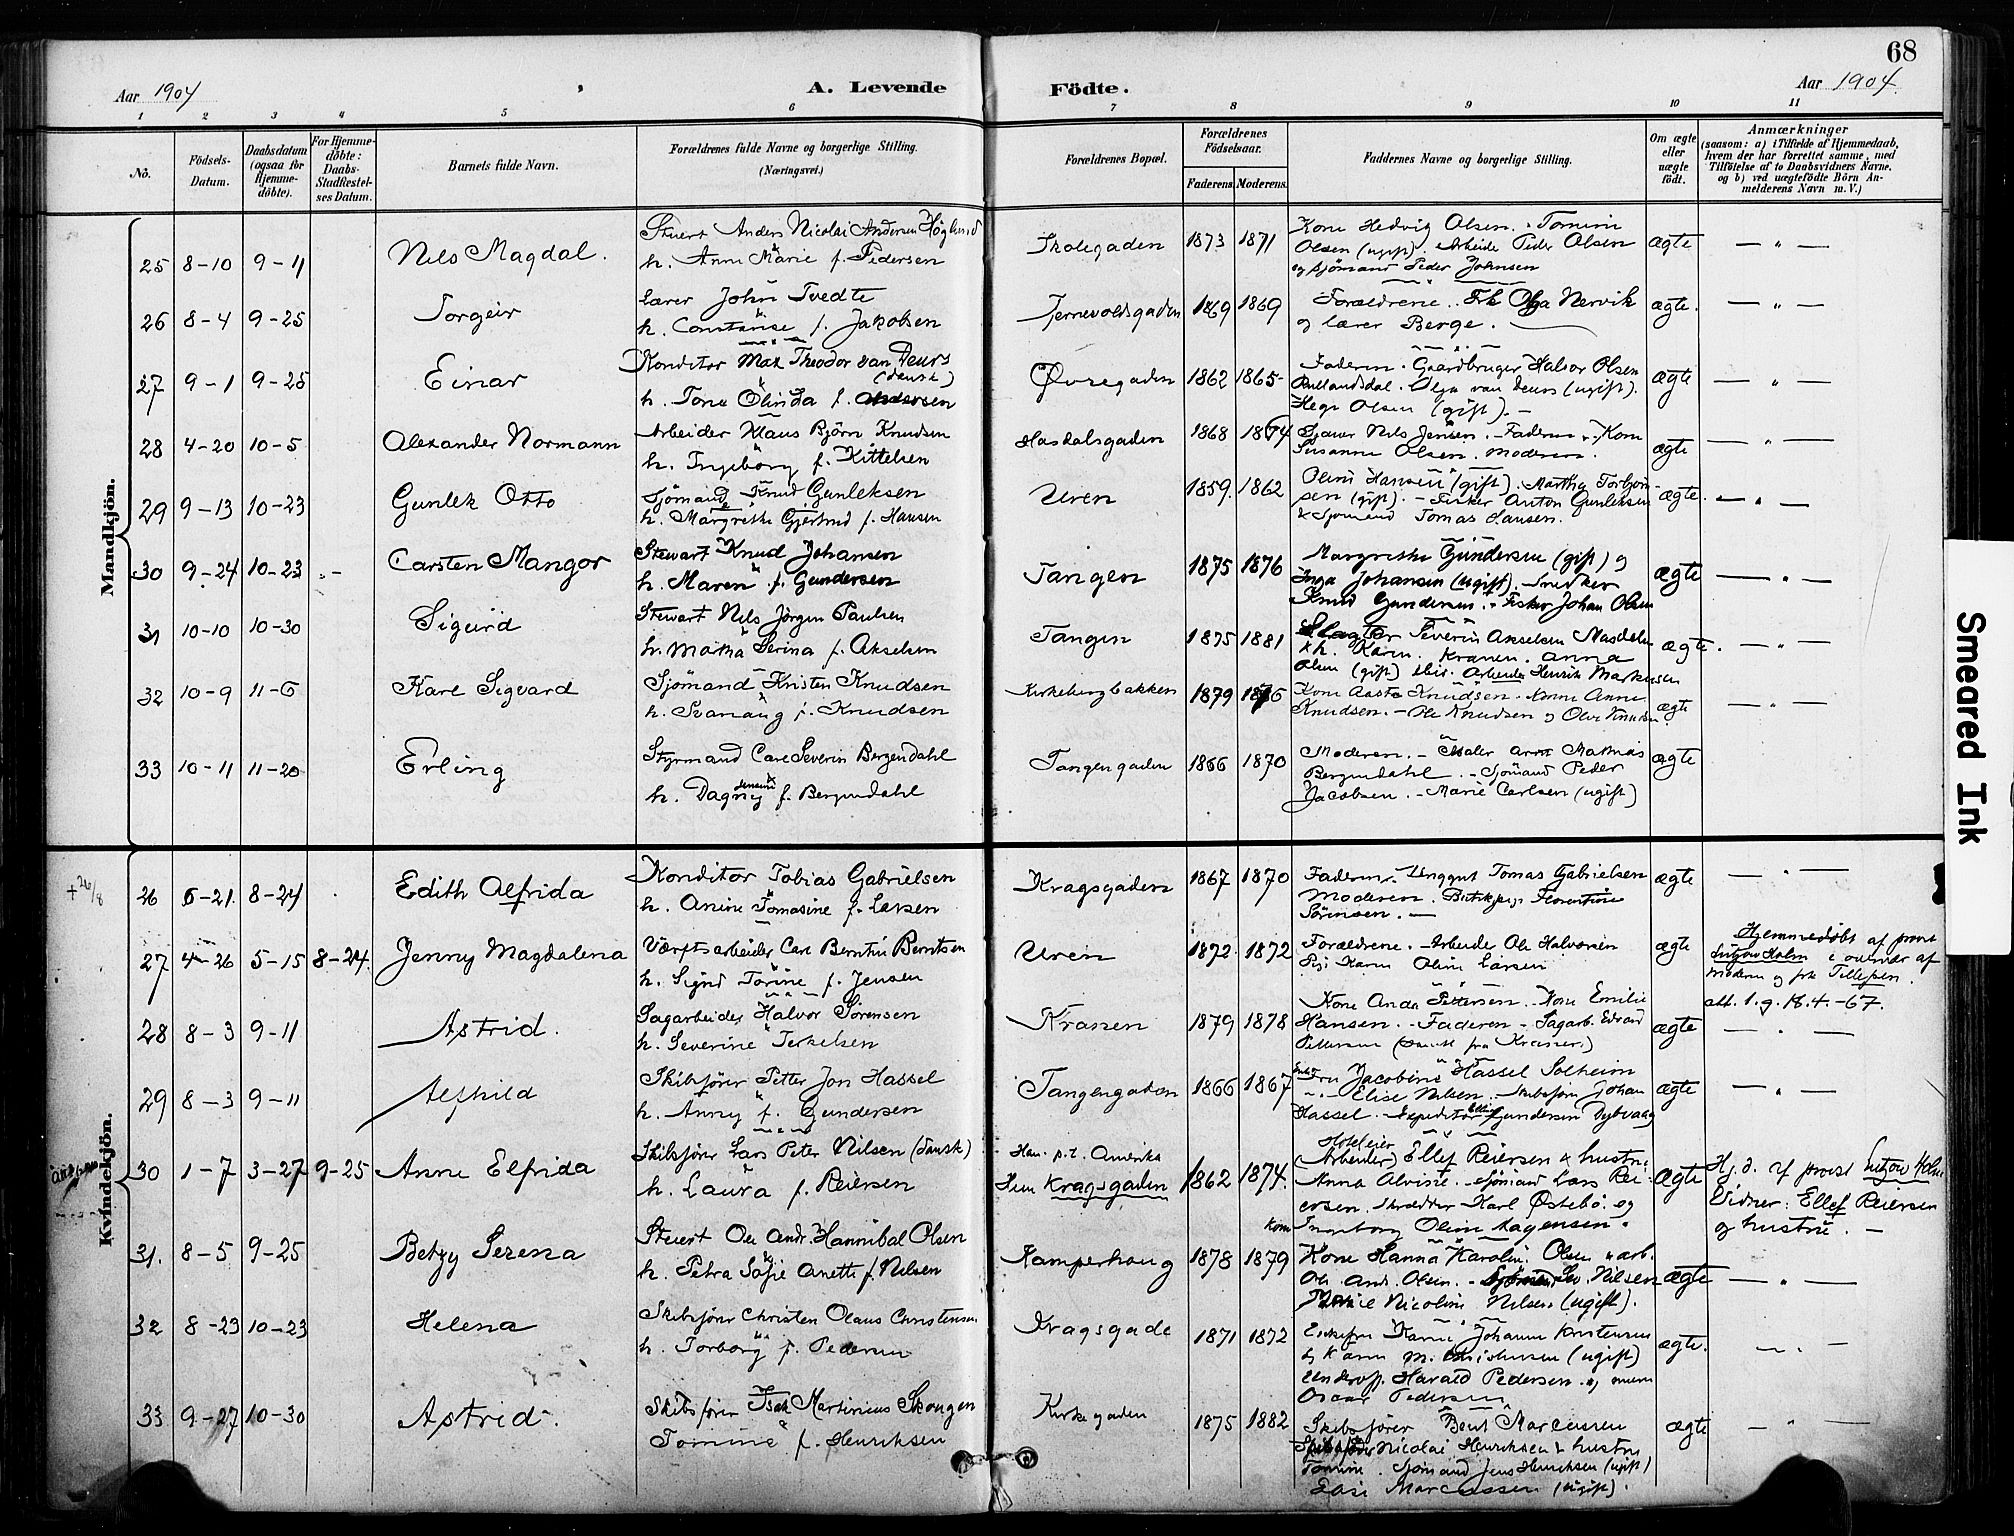 68
Aar 1904
A. Levende
Födte.
Aar 1904.
1 2 3 4 5 6 7 8 9 10 11
No.
Födsels-
Datum.
Daabsdatum
(ogsaa for
Hjemme-
döbte).
For Hjemme-
döbte:
Daabs-
Stadfæstel-
ses Datum.
Barnets fulde Navn.
Forældrenes fulde Navne og borgerlige Stilling.
(Næringsvei.)
Forældrenes Bopæl.
Forældrenes
Födselsaar.
Faderens. Moderens.
Faddernes Navne og borgerlige Stilling.
Om ægte
eller
uægte
födt.
Anmærkninger
(saasom: a) i Tilfælde af Hjemmedaab,
hvem der har forrettet samme, med
Tilföielse af to Daabsvidners Navne,
og b) ved uægtefödte Börn An-
melderens Navn m. V.)
Mandkjön.
25 8-10 9-11 Nils Magdal.
Stuert Anders Nicolai Andersen Höglund
h. Anne Marie f. Pedersen
Skolegaden 1873 1871
Kone Hedvig Olsen. Tomine
Olsen (ugift) Arbeider Peder Olsen
og sjömand Peder Johnsen
ægte — " —
26 8-4 9-25 Torgeir
Lærer John Tvedte
h. Constanse f. Jakobsen
Tjernevoldsgaden 1869 1869
Forældrene. Frk Olga Nervik
og lærer Berge.
ægte. — " —
27 9-1 9-25 Einar
Konditor Max Theodor van Deurs
(dansk)
h. Tone Olinda f. Andersen
Øvregaden 1862 1865
Faderen. Gaardbruger Halvor Olsen
Olga van Deurs (ugift).
Hege Olsen (gift).
ægte — " —
28 4-20 10-5 Alexander Normann
Arbeider Klaus Björn Knudsen
h. Ingeborg f. Kittelsen
Hasdalsgaden 1868 1874
Nils Jensen. Faderen. Kone
Susanne Olsen. Moderen.
ægte — " —
29 9-13 10-23 Gunlek Otto
Sjömand Knud Gunleksen
h. Margrethe Gjertrud f. Hansen
Uren 1859. 1862
Oline Hansen (gift). Martha Torbjörn-
sen (gift). - Fisker Anton Gunleksen
& Sjömand Tomas Hansen.
ægte. — " —
30 9-24 10-23 Carsten Mangor
Stewart Knud Johansen
h. Maren f. Gundersen
Tangen 1875 1876
Margrethe Gundersen (gift) og
Inga Johansen (ugift). Snedker
Knud Gundersen. Fisker Johan Olsen
ægte — " —
31 10-10 10-30 Sigurd
Stewart Nils Jörgen Paulsen
h. Martha Serina f. Akselsen
Tangen 1875 1881
Slagter Severin Akselsen Nasdalen
& h. Karen. Kranen. Anna
Olsen (gift) ibid. Arbeider Henrik Markusen
ægte. — " —
32 10-9 11-6 Karl Sigvard
Sjömand Kristen Knudsen
h. Svanaug f. Knudsen
Kirkebergbakken 1879 1876
Kone Aaste Knudsen. Anne
Knudsen. - Ole Knudsen og Olav Knudsen
ægte — " —
33 10-11 11-20 Erling
Styrmand Carl Severin Bergendahl
h. Dagny Jensine f. Bergendahl
Tangengaden 1866 1870
Moderen. - Maler Mathias
Bergendahl. - Sjömand Peder
Jacobsen. - Marie Carlsen (ugift)
ægte
Kvindekjön.
+26/8
26 6-21. 8-24 Edith Alfrida
Konditor Tobias Gabrielsen
h. Anine Tomasine f. Larsen
Kragsgaden 1867 1870
Faderen. Unggut Tomas Gabrielsen
Moderen. Florentine
Sörensen.
ægte — " —
27 4-26 5-15 8-24. Jenny Magdalena
Værftsarbeider Carl Berntin Berntsen
h. Signe Torine f. Jensen
Uren 1872. 1872
Forældrene. - Arbeider Ole Halvorsen
Pige Karen Oline Larsen
ægte
Hjemmedöbt af provst
Lützow Holm i overvær af
moderen og frk Tellefsen.
att. 1.g. 18.4.-67.
28 8-3 9-11 Astrid.
Sagarbeider Halvor Sörensen
h. Severine Terkelsen
Kranen 1879 1878
Kone Anda Pettersen. Kone Emilie
Hansen. - Faderen - Sagarb. Edvard
Pettersen
ægte — " —
29 8-3 9-11 Alfhild
Skibsförer Petter Jon Hassel
h. Anny f. Gundersen
Tangengaden 1866 1867
Fru Jacobine Hassel Solheim
Elise Nilsen. Skibsförer Johan
Hassel. - Expeditör Gundersen Dybvaag
ægte — " —
30 1-7 3-27 9-25 Anne Elfrida
Skibsförer Lars Peter Nilsen (dansk)
h. Laura f. Reiersen
Han p.t. Amerika
Hun Kragsgaden 1862 1874.
Hoteleier
(Arbeider) Ellef Reiersen & hustru
Anna Alvine. - Sjömand Lars Rei-
ersen. Skrædder Karl Østebö. og
kone Ingeborg Oline Aagensen.
ægte
Hj.d. af provst Lützow Holm
Vidner: Ellef Reiersen
og hustru. —
31. 8-5 9-25 Betzy Serena
Stuert Ole Andr. Hannibal Olsen
h. Petra Sofie Anette f. Nilsen
Kamperhaug 1878 1879
Kone Hanna Karoline Olsen " arb.
Ole And. Olsen. - Sjömand Sev. Nilsen
Marie Nicoline Nilsen (ugift).
ægte — " —
32 8-23 10-23 Helena
Skibsförer Christen Olaus Christensen
h. Torborg f. Pedersen
Kragsgade 1871 1872
Enkefru Karen Johanne Kristensen
& Karen M. Christensen (ugift)
Harald Pedersen og
Oscar Pedersen
ægte. — " —
33 9-27 10-30 Astrid.
Skibsförer Isak Martinius Skougen
Tomine f. Henriksen
Kirkegaden 1875 1882
Skibsförer Bent Marcussen
Skibsförer Nicolai Henriksen & hustru
Tomine. Sjömand Jens Henriksen (ugift)
Marcussen (ugift).
ægte — " —
Smeared Ink